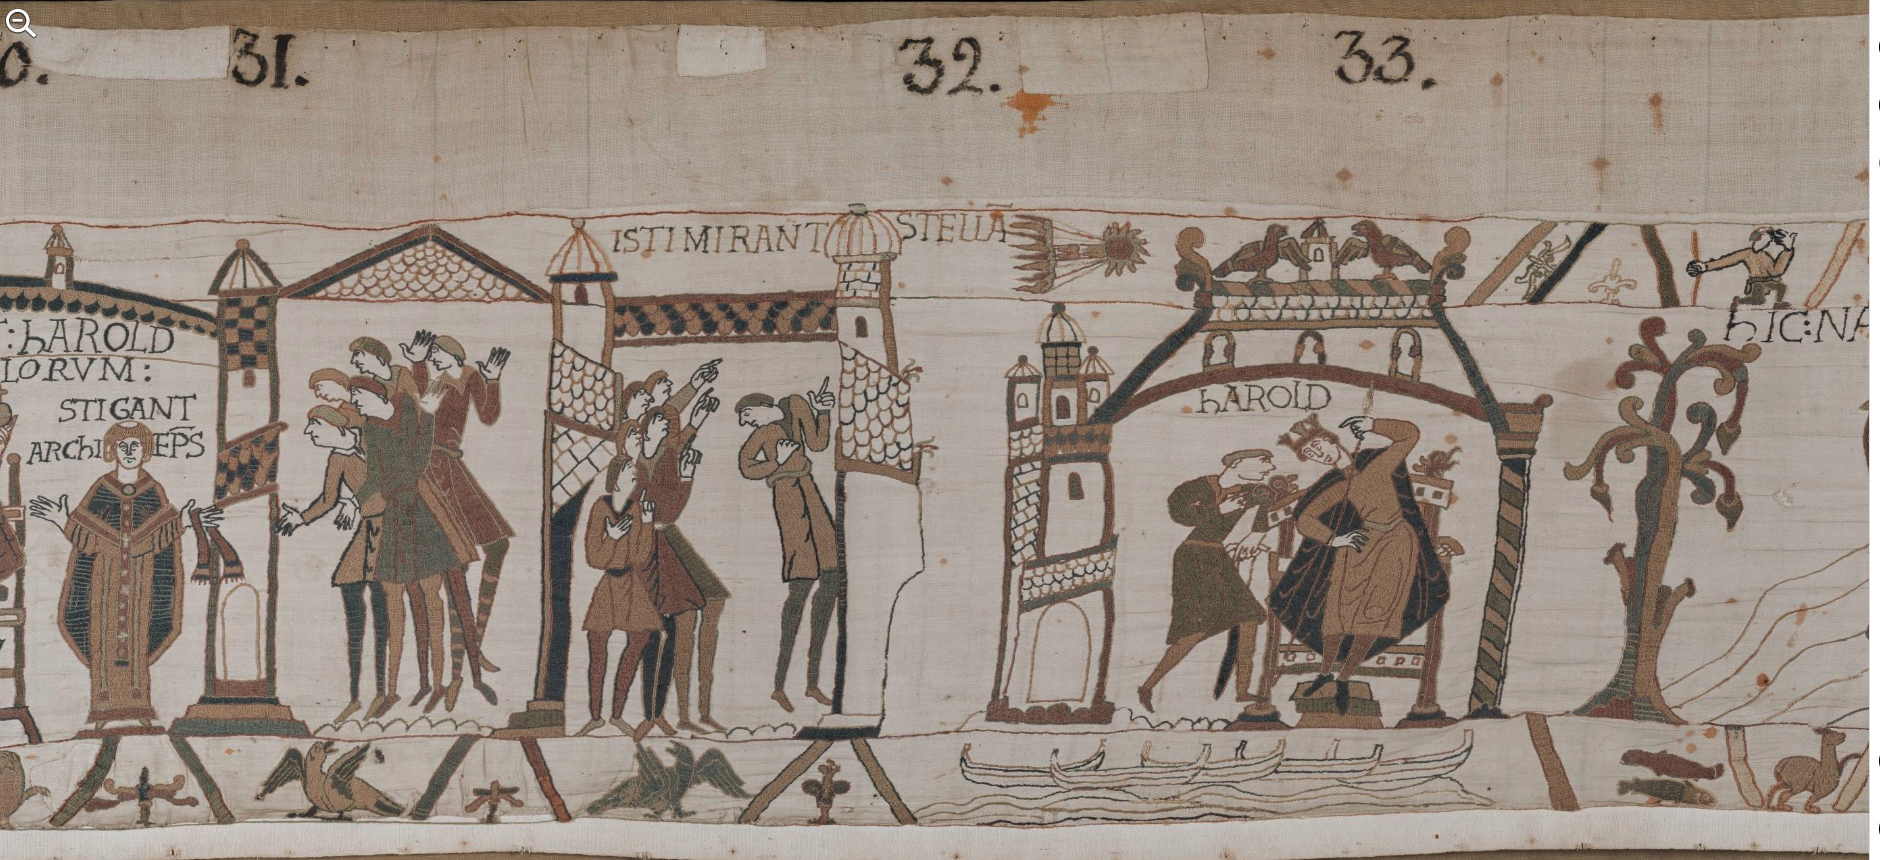 0.
31.
32.
33.
ISTI MIRANT STELLA
: hAROLD
LORVM :
STIGANT
ARChI EPS
hAROLD
hIC : NA